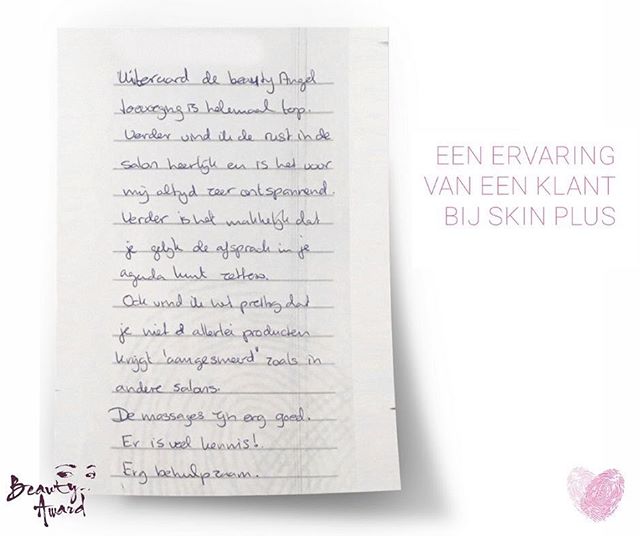 Uiteraard de beauty Angel
toevoeging is helemaal top.
Verder vind ik de rust in de
salon heerlijk en is het voor
mij altijd zeer ontspannend.
Verder is het makkelijk dat
je gelijk de afspraak in je
agenda kunt zetten.
Ook vind ik het prettig dat
je niet allerlei producten
krijgt 'aangesmeerd' zoals in
andere salons.
De massages zijn erg goed.
Er is veel kennis!
Erg behulpzaam.
EEN ERVARING
VAN EEN KLANT
BIJ SKIN PLUS
Beauty
Award